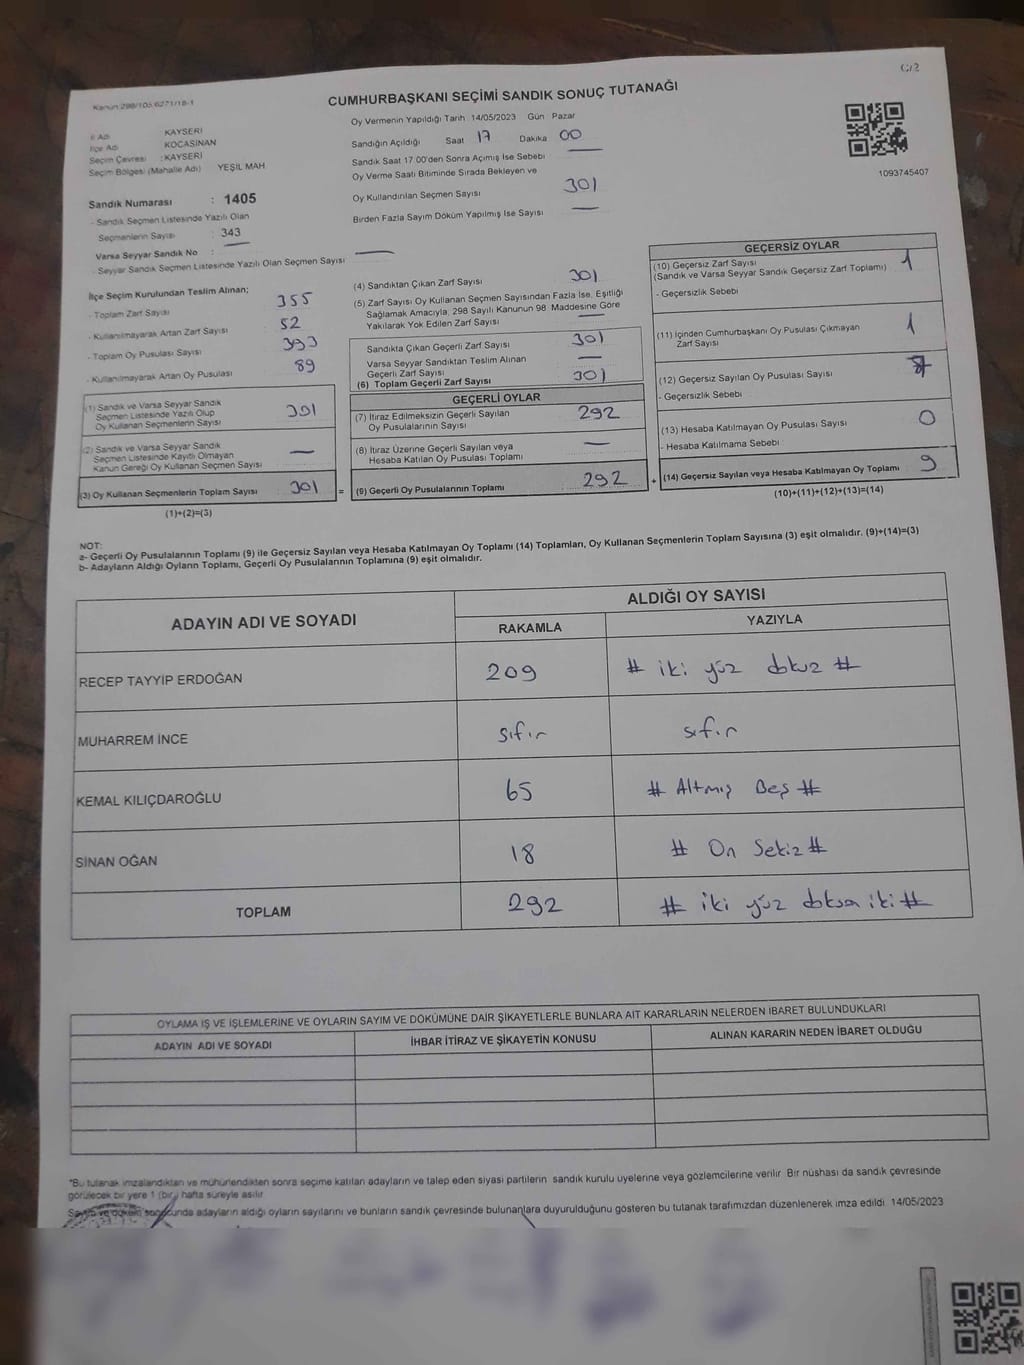 C/2
Kanun:298/105,6271/18-1
CUMHURBAŞKANI SEÇİMİ SANDIK SONUÇ TUTANAĞI
İl Adı KAYSERİ
İlçe Adı KOCASİNAN
Seçim Çevresi : KAYSERİ
Seçim Bölgesi (Mahalle Adı) YEŞİL MAH
Sandık Numarası : 1405
- Sandık Seçmen Listesinde Yazılı Olan
Seçmenlerin Sayısı : 343
Varsa Seyyar Sandık No : —
- Seyyar Sandık Seçmen Listesinde Yazılı Olan Seçmen Sayısı —
Oy Vermenin Yapıldığı Tarih 14/05/2023 Gün Pazar
Sandığın Açıldığı Saat 17 Dakika 00
Sandık Saat 17.00'den Sonra Açılmış İse Sebebi —
Oy Verme Saati Bitiminde Sırada Bekleyen ve
Oy Kullandırılan Seçmen Sayısı 301
Birden Fazla Sayım Döküm Yapılmış İse Sayısı —
1093745407
İlçe Seçim Kurulundan Teslim Alınan;
- Toplam Zarf Sayısı 355
- Kullanılmayarak Artan Zarf Sayısı 52
- Toplam Oy Pusulası Sayısı 393
- Kullanılmayarak Artan Oy Pusulası 89
(1) Sandık ve Varsa Seyyar Sandık
Seçmen Listesinde Yazılı Olup
Oy Kullanan Seçmenlerin Sayısı 301
(2) Sandık ve Varsa Seyyar Sandık
Seçmen Listesinde Kayıtlı Olmayan
Kanun Gereği Oy Kullanan Seçmen Sayısı —
(3) Oy Kullanan Seçmenlerin Toplam Sayısı 301 =
(1)+(2)=(3)
(4) Sandıktan Çıkan Zarf Sayısı 301
(5) Zarf Sayısı Oy Kullanan Seçmen Sayısından Fazla İse, Eşitliği
Sağlamak Amacıyla, 298 Sayılı Kanunun 98. Maddesine Göre
Yakılarak Yok Edilen Zarf Sayısı —
Sandıkta Çıkan Geçerli Zarf Sayısı 301
Varsa Seyyar Sandıktan Teslim Alınan
Geçerli Zarf Sayısı —
(6) Toplam Geçerli Zarf Sayısı 301
GEÇERLİ OYLAR
(7) İtiraz Edilmeksizin Geçerli Sayılan
Oy Pusulalarının Sayısı 292
(8) İtiraz Üzerine Geçerli Sayılan veya
Hesaba Katılan Oy Pusulası Toplamı —
(9) Geçerli Oy Pusulalarının Toplamı 292 +
GEÇERSİZ OYLAR
(10) Geçersiz Zarf Sayısı
(Sandık ve Varsa Seyyar Sandık Geçersiz Zarf Toplamı) 1
- Geçersizlik Sebebi
(11) İçinden Cumhurbaşkanı Oy Pusulası Çıkmayan
Zarf Sayısı 1
(12) Geçersiz Sayılan Oy Pusulası Sayısı
- Geçersizlik Sebebi
(13) Hesaba Katılmayan Oy Pusulası Sayısı 0
- Hesaba Katılmama Sebebi
(14) Geçersiz Sayılan veya Hesaba Katılmayan Oy Toplamı 9
(10)+(11)+(12)+(13)=(14)
NOT:
a- Geçerli Oy Pusulalarının Toplamı (9) ile Geçersiz Sayılan veya Hesaba Katılmayan Oy Toplamı (14) Toplamları, Oy Kullanan Seçmenlerin Toplam Sayısına (3) eşit olmalıdır. (9)+(14)=(3)
b- Adayların Aldığı Oyların Toplamı, Geçerli Oy Pusulalarının Toplamına (9) eşit olmalıdır.
ADAYIN ADI VE SOYADI
ALDIĞI OY SAYISI
RAKAMLA YAZIYLA
RECEP TAYYİP ERDOĞAN 209 # iki yüz dokuz #
MUHARREM İNCE sıfır sıfır
KEMAL KILIÇDAROĞLU 65 # Altmış Beş #
SİNAN OĞAN 18 # On Sekiz #
TOPLAM 292 # iki yüz doksan iki #
OYLAMA İŞ VE İŞLEMLERİNE VE OYLARIN SAYIM VE DÖKÜMÜNE DAİR ŞİKAYETLERLE BUNLARA AİT KARARLARIN NELERDEN İBARET BULUNDUKLARI
ADAYIN ADI VE SOYADI İHBAR İTİRAZ VE ŞİKAYETİN KONUSU ALINAN KARARIN NEDEN İBARET OLDUĞU
*Bu tutanak imzalandıktan ve mühürlendikten sonra seçime katılan adayların ve talep eden siyasi partilerin sandık kurulu üyelerine veya gözlemcilerine verilir. Bir nüshası da sandık çevresinde
görülecek bir yere 1 (bir) hafta süreyle asılır
Sayım ve döküm sonucunda adayların aldığı oyların sayılarını ve bunların sandık çevresinde bulunanlara duyurulduğunu gösteren bu tutanak tarafımızdan düzenlenerek imza edildi. 14/05/2023